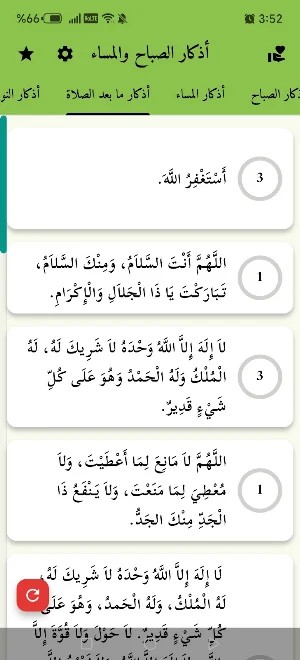 %66
VoLTE
3:52
أذكار الصباح والمساء
أذكار الصباح
أذكار المساء
أذكار ما بعد الصلاة
أذكار النو
أَسْتَغْفِرُ اللَّهَ.
3
اللَّهُمَّ أَنْتَ السَّلاَمُ، وَمِنْكَ السَّلاَمُ،
تَبَارَكْتَ يَا ذَا الْجَلاَلِ وَالْإِكْرَامِ.
1
لاَ إِلَهَ إِلاَّ اللَّهُ وَحْدَهُ لاَ شَرِيكَ لَهُ، لَهُ
الْمُلْكُ وَلَهُ الْحَمْدُ وَهُوَ عَلَى كُلِّ
شَيْءٍ قَدِيرٌ.
3
اللَّهُمَّ لاَ مَانِعَ لِمَا أَعْطَيْتَ، وَلاَ
مُعْطِيَ لِمَا مَنَعْتَ، وَلاَ يَنْفَعُ ذَا
الْجَدِّ مِنْكَ الجَدُّ.
1
لَا إِلَهَ إِلاَّ اللَّهُ وَحْدَهُ لاَ شَرِيكَ لَهُ،
لَهُ الْمُلْكُ، وَلَهُ الْحَمدُ، وَهُوَ عَلَى
كُلِّ شَيْءٍ قَدِيرٌ. لاَ حَوْلَ وَلاَ قُوَّةَ إِلاَّ